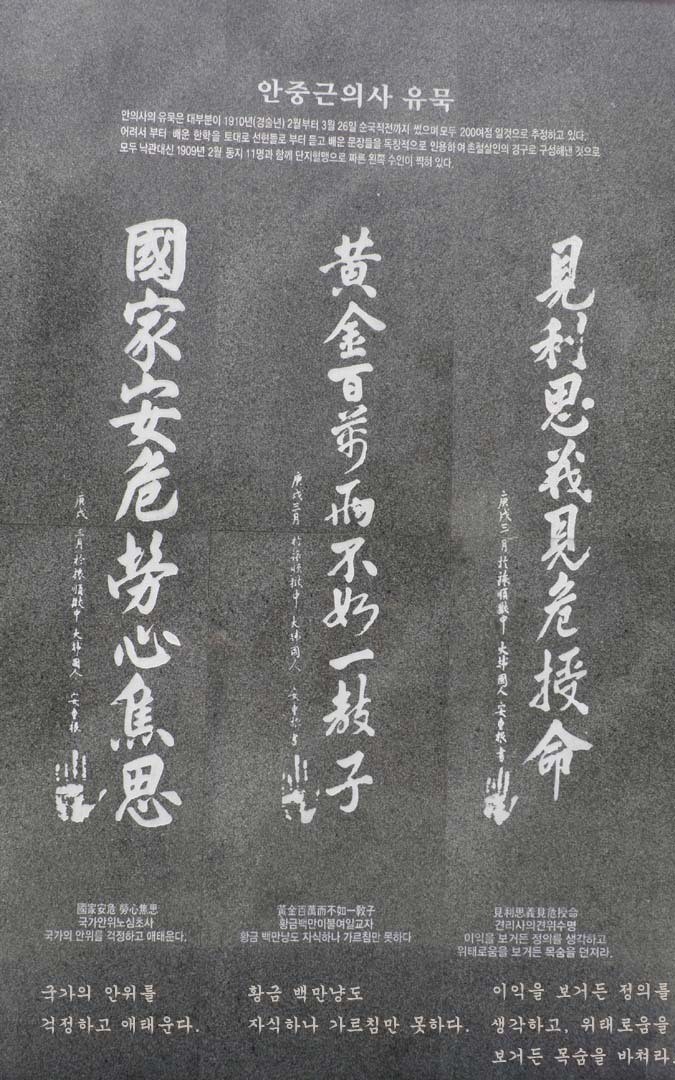 안중근의사 유묵
안의사의 유묵은 대부분이 1910년(경술년) 2월부터 3월 26일 순국직전까지 썼으며 모두 200여점 일것으로 추정하고 있다.
어려서 부터 배운 한학을 토대로 선현들로 부터 듣고 배운 문장들을 독창적으로 인용하여 촌철살인의 경구로 구성해낸 것으로
모두 낙관대신 1909년 2월 동지 11명과 함께 단지혈맹으로 짜른 왼쪽 수인이 찍혀 있다.
國家安危勞心焦思
庚戌 三月 於旅順獄中 大韓國人 安重根
黃金百萬兩不如一敎子
庚戌三月 於旅順獄中 大韓國人 安重根 書
見利思義見危授命
庚戌三月 於旅順獄中 大韓國人 安重根 書
國家安危 勞心焦思
국가안위노심초사
국가의 안위를 걱정하고 애태운다.
黃金百萬而不如一敎子
황금백만이불여일교자
황금 백만냥도 자식하나 가르침만 못하다
見利思義見危授命
견리사의견위수명
이익을 보거든 정의를 생각하고
위태로움을 보거든 목숨을 던져라.
국가의 안위를
걱정하고 애태운다.
황금 백만냥도
자식하나 가르침만 못하다.
이익을 보거든 정의를
생각하고, 위태로움을
보거든 목숨을 바쳐라.